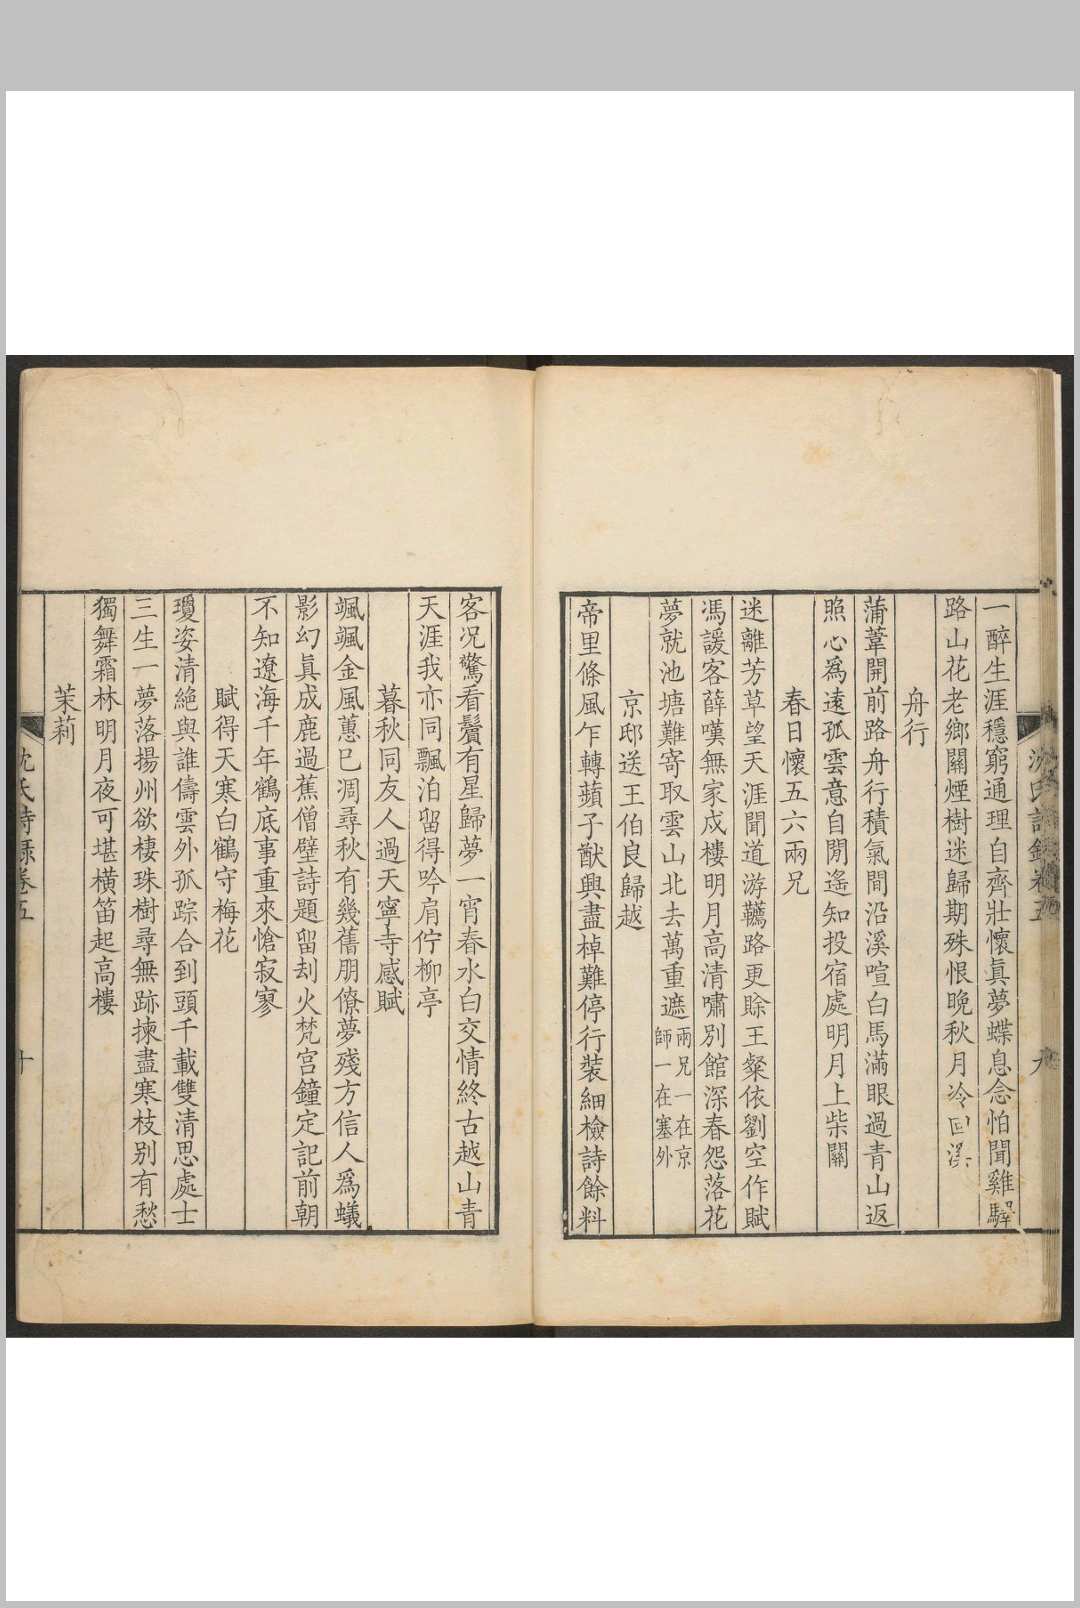 一醉生涯穩窮通理自齊壯懷眞夢蝶息念怕聞雞驛
路山花老鄉關煙樹迷歸期殊恨晚秋月冷回溪
舟行
蒲葦開前路舟行積氣間沿溪喧白馬滿眼過青山返
照心爲遠孤雲意自閒遙知投宿處明月上柴關
春日懷五六兩兄
迷離芳草望天涯聞道游韉路更賒王粲依劉空作賦
馮諼客薛嘆無家戍樓明月高清嘯別館深春怨落花
夢就池塘難寄取雲山北去萬重遮兩兄一在京師一在塞外
京邸送王伯良歸越
帝里條風乍轉蘋子猷興盡棹難停行裝細檢詩餘料
客况驚看鬢有星歸夢一宵春水白交情終古越山青
天涯我亦同飄泊留得吟肩佇柳亭
暮秋同友人過天寧寺感賦
颯颯金風蕙已凋尋秋有幾舊朋僚夢殘方信人爲蟻
影幻眞成鹿過蕉僧壁詩題留刦火梵宮鐘定記前朝
不知遼海千年鶴底事重來愴寂寥
賦得天寒白鶴守梅花
瓊姿清絕與誰儔雲外孤踪合到頭千載雙清思處士
三生一夢落揚州欲棲珠樹尋無跡揀盡寒枝別有愁
獨舞霜林明月夜可堪橫笛起高樓
茉莉
沈氏詩錄卷五
十